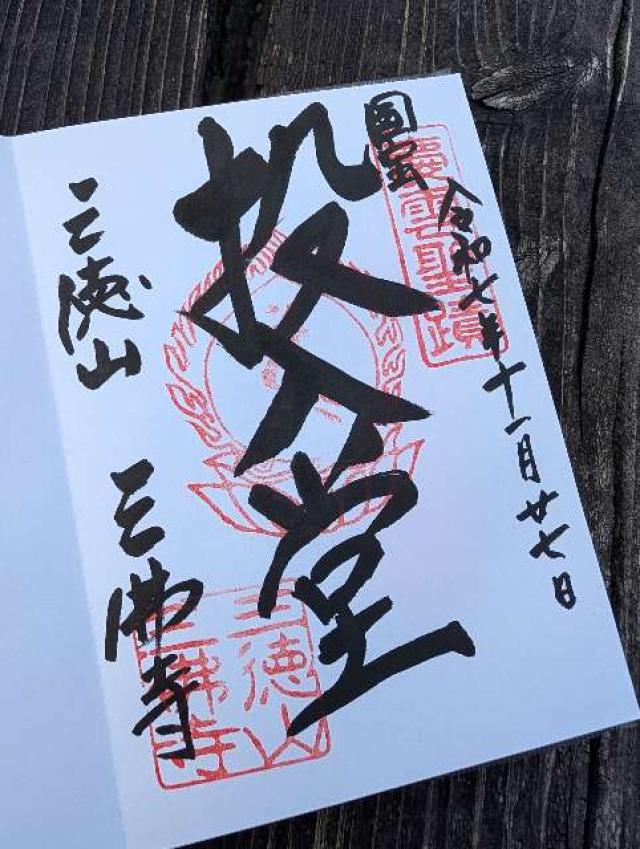 國宝
令和七年十一月廿七日
投入堂
三徳山
三佛寺
靈雲聖蹟
三徳山
三佛寺